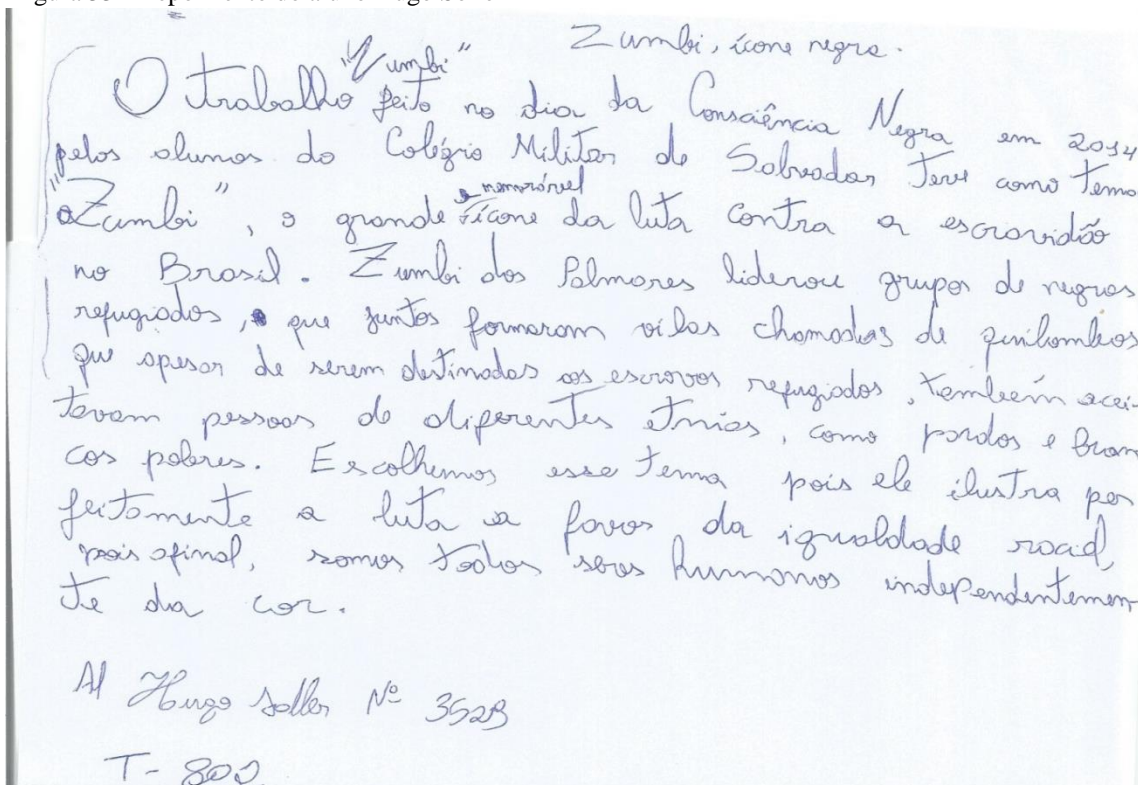 Zumbi, ícone negro.
"Zumbi"
O trabalho feito no dia da Consciência Negra em 2014
pelos alunos do Colégio Militar de Salvador teve como tema
"Zumbi", o grande e memorável ícone da luta contra a escravidão
no Brasil. Zumbi dos Palmares liderou grupos de negros
refugiados, que juntos formaram vilas chamadas de quilombos
que apesar de serem destinadas aos escravos refugiados, também acei-
tavam pessoas de diferentes etnias, como pardos e bran
cos pobres. Escolhemos esse tema pois ele ilustra per
feitamente a luta a favor da igualdade racial,
pois afinal, somos todos seres humanos independentemen
te da cor.
Al Hugo Nº
T-